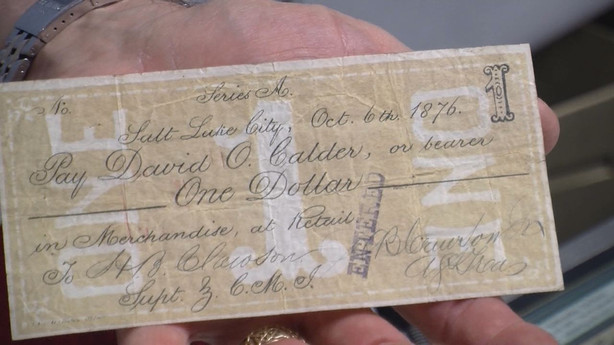 No. Series A. 1
Salt Lake City, Oct. 6th. 1876.
Pay David O. Calder, or bearer
One Dollar
in Merchandise, at Retail
ENTERED
To H B Clawson
Supt. Z. C. M. I.
ONE 1 ONE